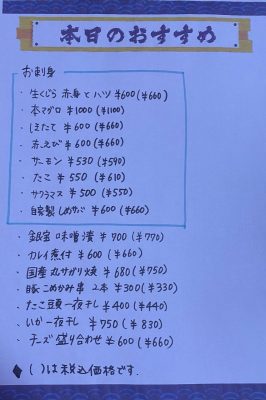 本日のおすすめ
お刺身
・生くじら 赤身とハツ ¥600(¥660)
・本マグロ ¥1000(¥1100)
・ほたて ¥600(¥660)
・赤えび ¥600(¥660)
・サーモン ¥530(¥590)
・たこ ¥550(¥610)
・サクラマス ¥500(¥550)
・自家製しめサバ ¥600(¥660)
・銀宝味噌漬 ¥700(¥770)
・カレイ煮付 ¥600(¥660)
・国産丸サガリ焼 ¥680(¥750)
・豚こめかみ串 2本 ¥300(¥330)
・たこ頭一夜干し ¥400(¥440)
・いか一夜干し ¥750(¥830)
・チーズ盛り合わせ ¥600(¥660)
◆( )は税込価格です。